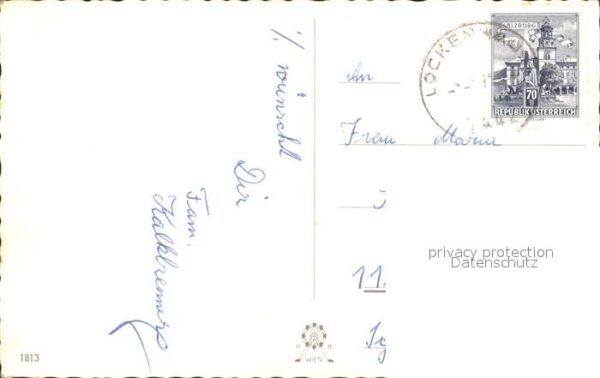 %. wünscht
Dir
Fam.
Kalkbrenner
1813
H B
WIEN
SALZBURG
70
REPUBLIK ÖSTERREICH
LOCKEN
An
Frau Maria
11.
privacy protection
Datenschutz